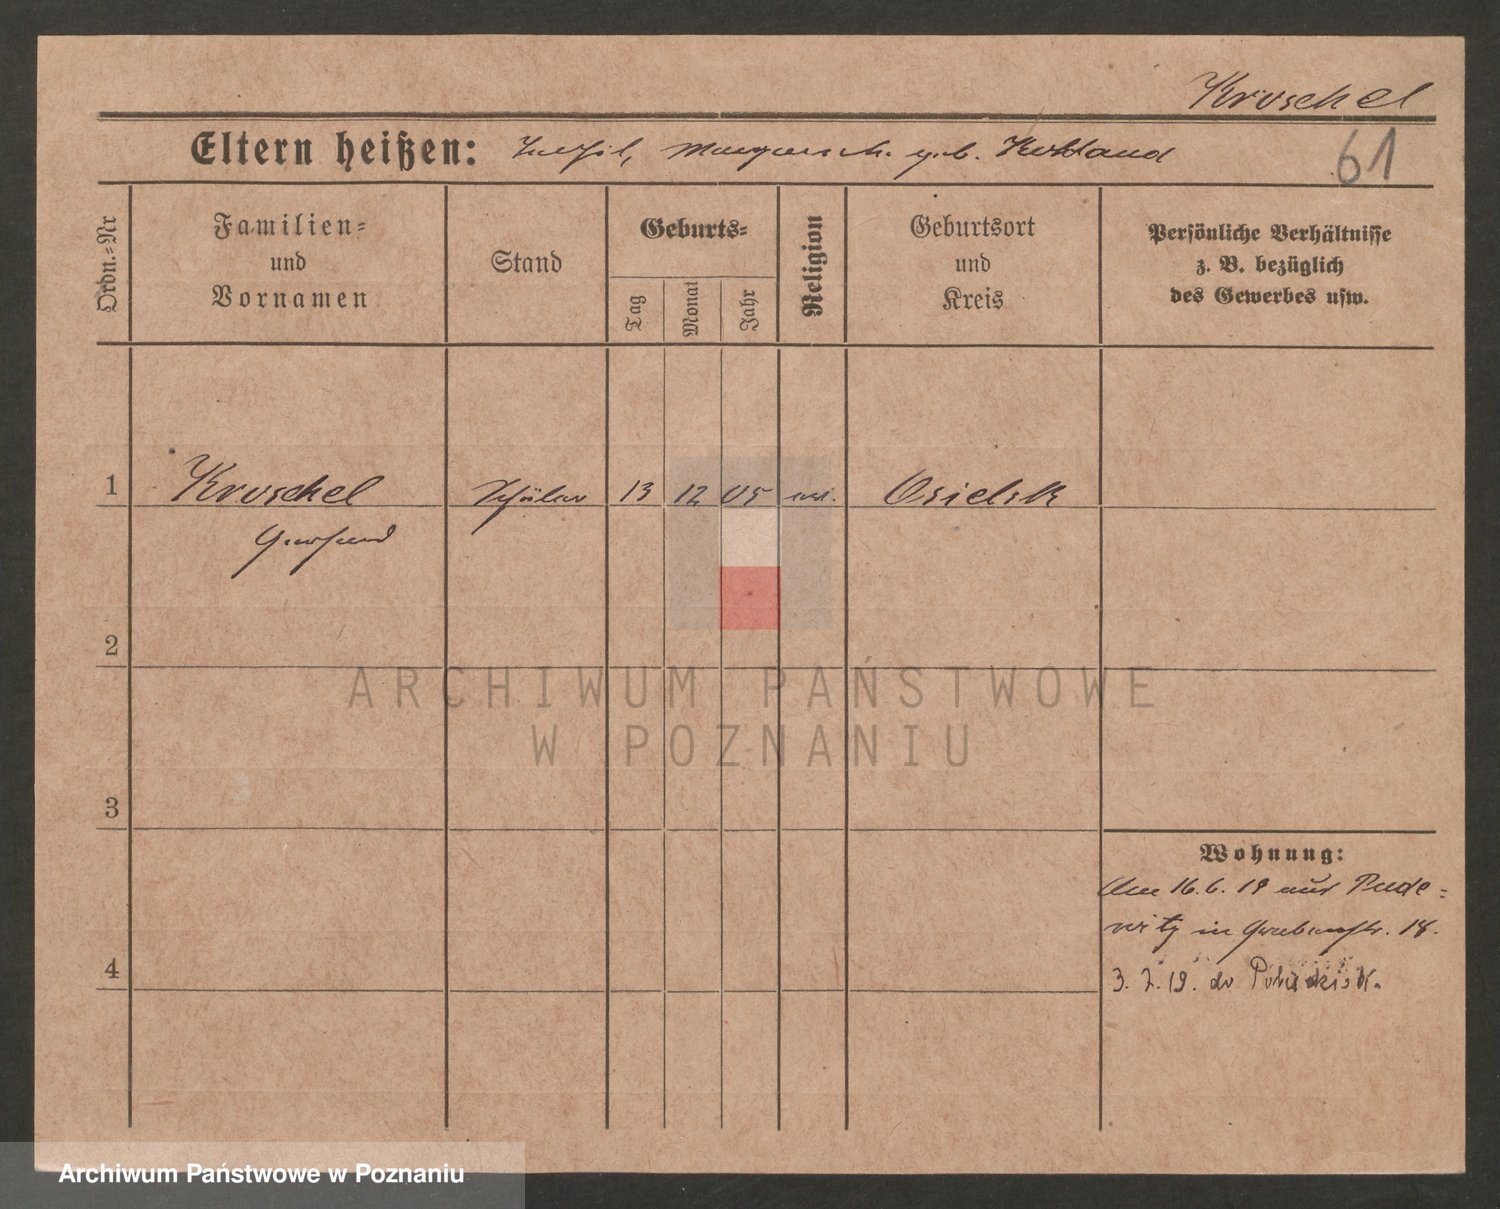 Kroschel
Eltern heißen: geb.
61
Ordn.=Nr
Familien=
und
Vornamen
Stand
Geburts=
Tag
Monat
Jahr
Religion
Geburtsort
und
Kreis
Persönliche Verhältnisse
z. B. bezüglich
des Gewerbes usw.
1 Kroschel Schüler 13 12 05 Osielsk
2
ARCHIWUM PAŃSTWOWE
W POZNANIU
3
Wohnung:
16.6.19 aus Pude=
witz in 18.
4
3.7.19. do
Archiwum Państwowe w Poznaniu